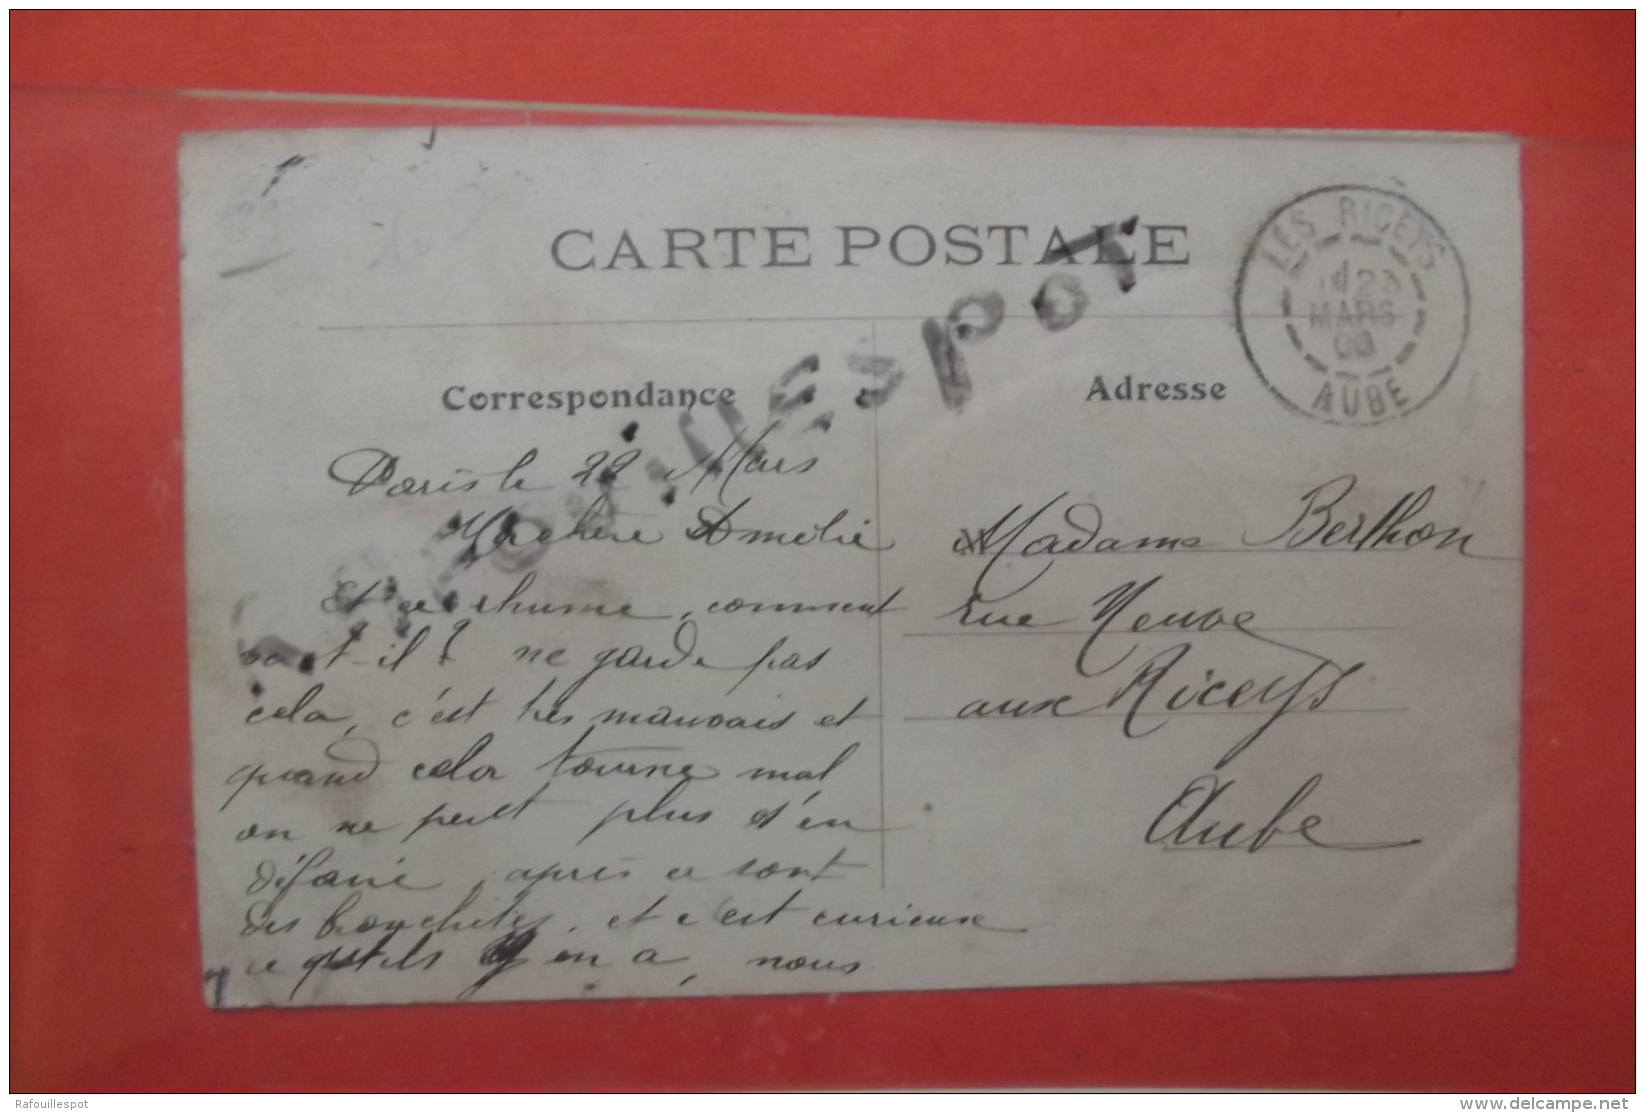 CARTE POSTALE
LES RICEYS
23
MARS
09
AUBE
Correspondance
Adresse
Paris le 22 Mars
Ma chère Amélie
Et ce rhume, comment
va-t-il? ne garde pas
cela, c'est très mauvais et
quand cela tourne mal
on ne peut plus s'en
défaire, après ce sont
des bronchites, et c'est curieux
ce qu'ils y en a, nous
Madame Berthon
rue Neuve
aux Riceys
Aube
Rafouillespot
Rafouillespot
delcampe.net